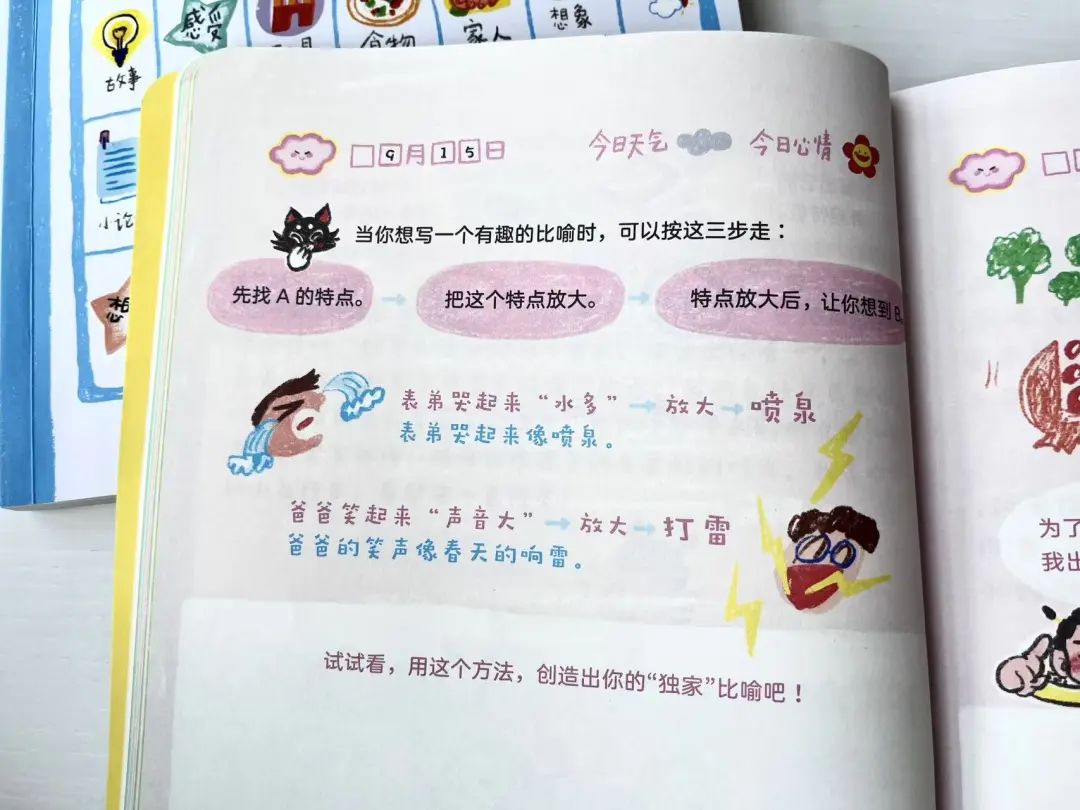 故事
感受
食物
家人
想象
小论
想
9月15日
今日天气
今日心情
当你想写一个有趣的比喻时，可以按这三步走：
先找 A 的特点。
把这个特点放大。
特点放大后，让你想到 B
表弟哭起来“水多”→放大→喷泉
表弟哭起来像喷泉。
爸爸笑起来“声音大”→放大→打雷
爸爸的笑声像春天的响雷。
试试看，用这个方法，创造出你的“独家”比喻吧！
为了
我出